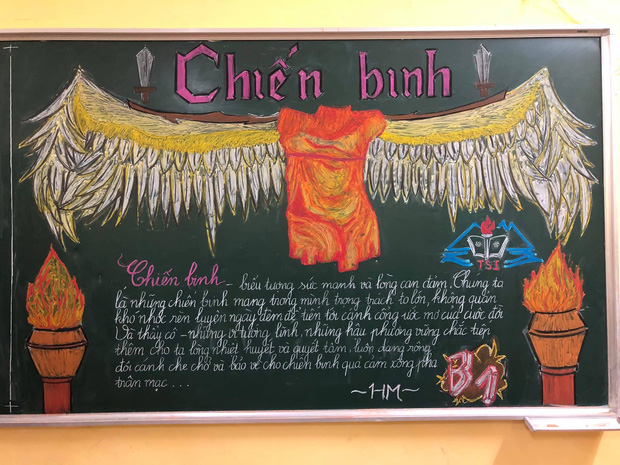 Chiến binh
Chiến binh - biểu tượng sức mạnh và lòng can đảm. Chúng ta
là những chiến binh mang trong mình trọng trách to lớn, không quản
khó nhọc rèn luyện ngày đêm để tiến tới cánh cổng ước mơ của cuộc đời.
Và thầy cô - những vị tướng lĩnh, những hậu phương vững chắc tiếp
thêm cho ta lòng nhiệt huyết và quyết tâm, luôn dang rộng
đôi cánh che chở và bảo vệ cho chiến binh quả cảm xông pha
trận mạc...
~HM~
TSI
B1